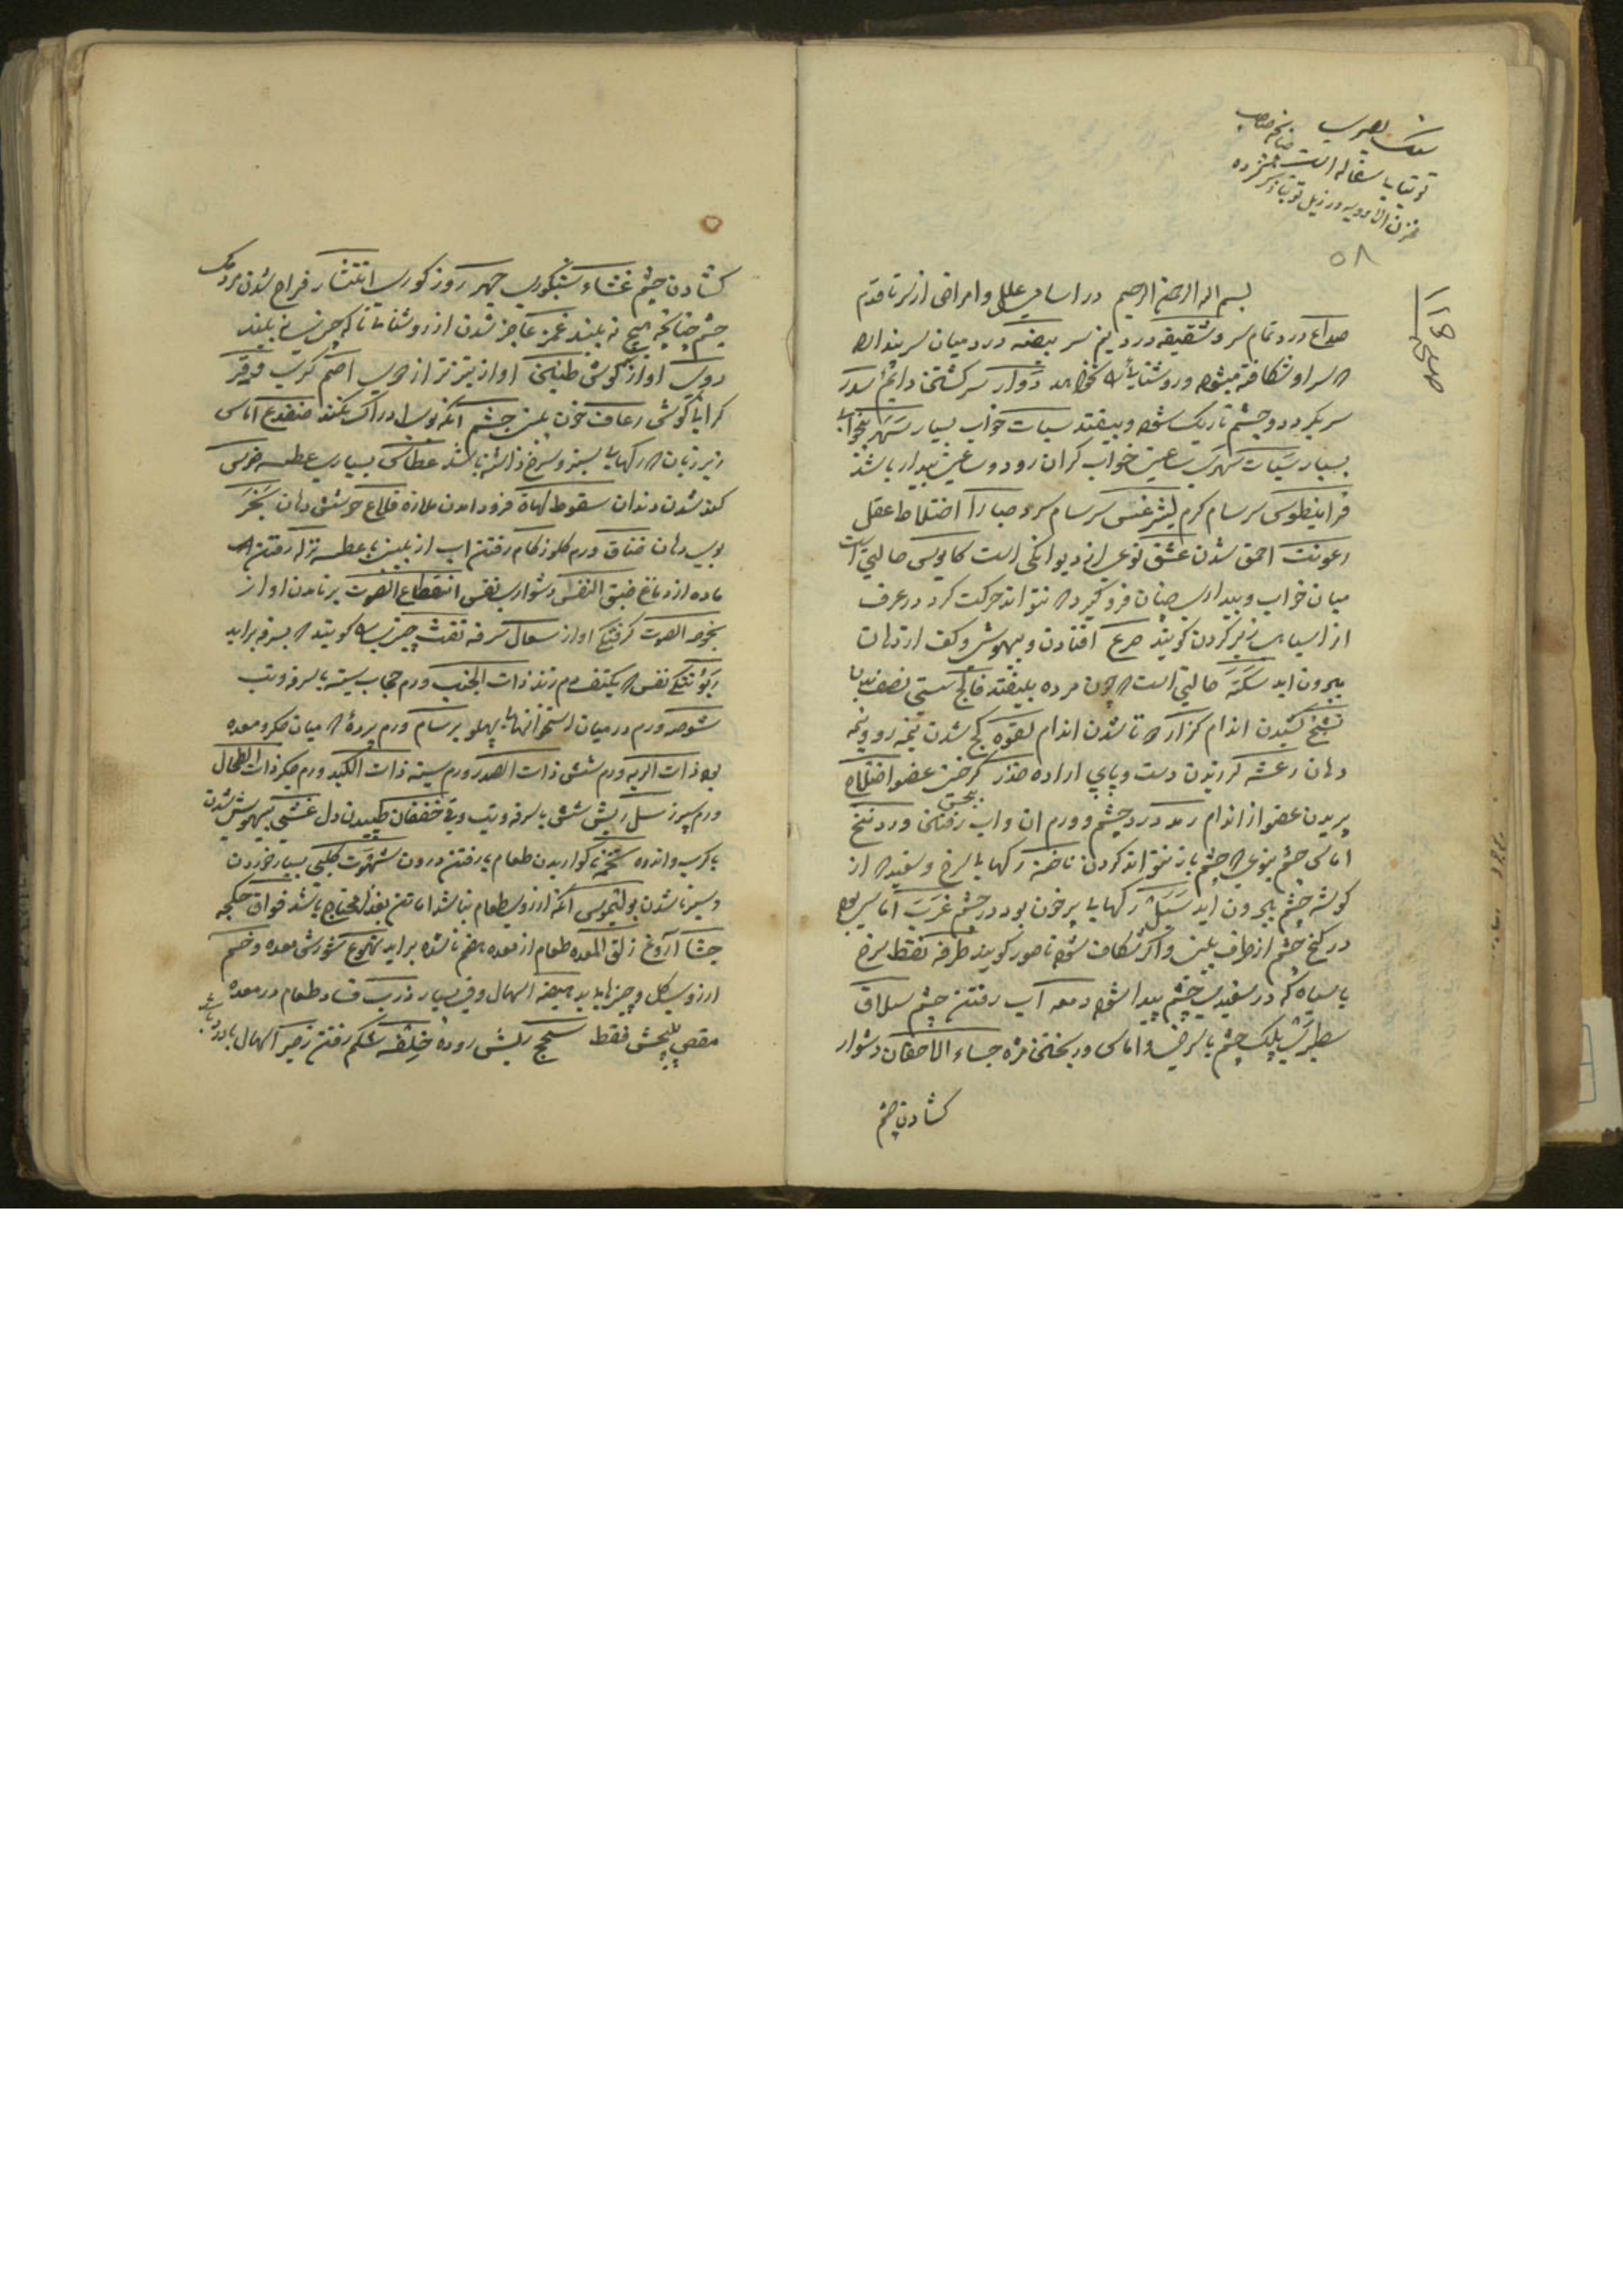 سنک بصری
توتیا سفاله است چنانچه صاحب
مخزن الادویه در ذیل توتیا ذکر کرده
۵۸
بسم الله الرحمن الرحیم در اسامی علل و امراض از سر تا قدم
صداع درد تمام سر و شقیقه درد نیم سر بیضه درد میان سر پندارد
که سر او شکافته میشود و روشنایی نخواهد دوار سرکشتن دایم سدر
سر بکردد و چشم تاریک شود و بیفتد سبات خواب بسیار سهر بیخوابی
بسیار سبات سهری ساعتی خواب کران رود و ساعتی بیدار باشد
قرانیطوس سرسام کرم لیثرغس سرسام سرد صبارا اختلاط عقل
رعونت احمق شدن عشق نوعی از دیوانکی است کابوس حالتی است
میان خواب و بیداری چنان فرو کیرد که نتواند حرکت کرد در عرف
از اسیاب زیر کردن کویند صرع افتادن و بیهوش و کف از دهان
بیرون اید سکته حالتی است که چون مرده بیفتد فالج سستی نصف بدن
تشنج کشیدن اندام کزاز تا شدن اندام لقوه کج شدن نیمه رو و نیمه
دهان رعشه لرزیدن دست و پای اراده خدر کرختی عضو اختلاج
پریدن عضو از اندام رمد درد چشم و ورم ان و اب رفتن وردینج
اماس چشم بنوعی که چشم باز نتواند کردن ناخنه رکهای سرخ و سفید که از
کوشه چشم بیرون اید سبل رکهای پر خون بود در چشم غرب اماسی بود
در کنج چشم از طرف بینی و اکر شکافت شود ناصور کویند طرفه نقطه سرخ
یا سیاه که در سفیدی چشم پیدا شود دمعه آب رفتن چشم سلاق
سطبری پلک چشم با سرخی و اماس و ریختن مژه جساء الاجفان دشوار
کشادن چشم
کشادن چشم غشاء شبکوری جهر روزکوری انتشار فراخ شدن مردمک
چشم چنانچه هیچ نه بیند قمر عاجز شدن از روشنایی تا که چیزی نه بیند
دوی اواز کوش طنین اواز تیزتر از دوی اصم کری وقر
کرانی کوش رعاف خون بینی خشم انکه بوی را ادراک نکند ضفدع اماس
زیر زبان که رکهای سبز و سرخ داشته باشد عطاس بسیاری عطسه ضرس
کند شدن دندان سقوط لهاة فرود امدن ملازه قلاع جوشش دهان بخر
بوی دهان خناق ورم کلو زکام رفتن اب از بینی با عطسه نزله رفتن
ماده از دماغ ضیق النفس دشواری نفس انقطاع الصوت برنامدن اواز
بحوحه الصوت کرفتکی اواز سعال سرفه نفث چیزی را کویند که بسرفه براید
ربو تنکی نفس که یکتف دم زند ذات الجنب ورم حجاب سینه با سرفه و تب
شوصه ورم در میان استخوانهای پهلو برسام ورم پردهٔ که میان جکر و معده
بود ذات الریه ورم شش ذات الصدر ورم سینه ذات الکبد ورم جکر ذات الطحال
ورم سپرز سل ریش شش با سرفه و تب و قی خفقان طپیدن دل غشی بیهوش شدن
با کرب و اندوه تخمه ناکواریدن طعام یا رفتن درون شهوت کلبی بسیار خوردن
و سیر ناشدن بولیموس انکه ارزوی طعام نباشد اما تن بغذا محتاج باشد فواق حکجه
جشا آروغ زلق المعده طعام از معده هضم ناشده براید تهوع شورش معده و خم
ارزوی کل و چیزهای بد هیضه اسهال و قی بسیار ذرب فساد طعام در معده
مغص پیچش فقط سحج ریش روده خلفه شکم رفتن زحیر اسهال با درد باشد